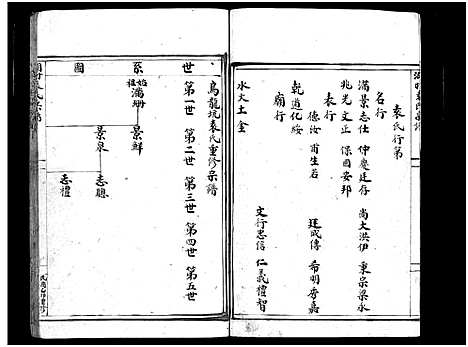 袁氏行第
名行
滿景志仕 仲慶廷存 尚大洪伊 秉宗梁永
兆光文正 保國安邦
表行
德汝甫生若 廷成傳 希明秀嘉
乾道化綏
廟行
文行忠信 仁義禮智
水火土金
烏龍坑袁氏重修宗譜
世系圖
第一世 第二世 第三世 第四世 第五世
始祖滿珊
景鮮
景泉
志聰
志禮